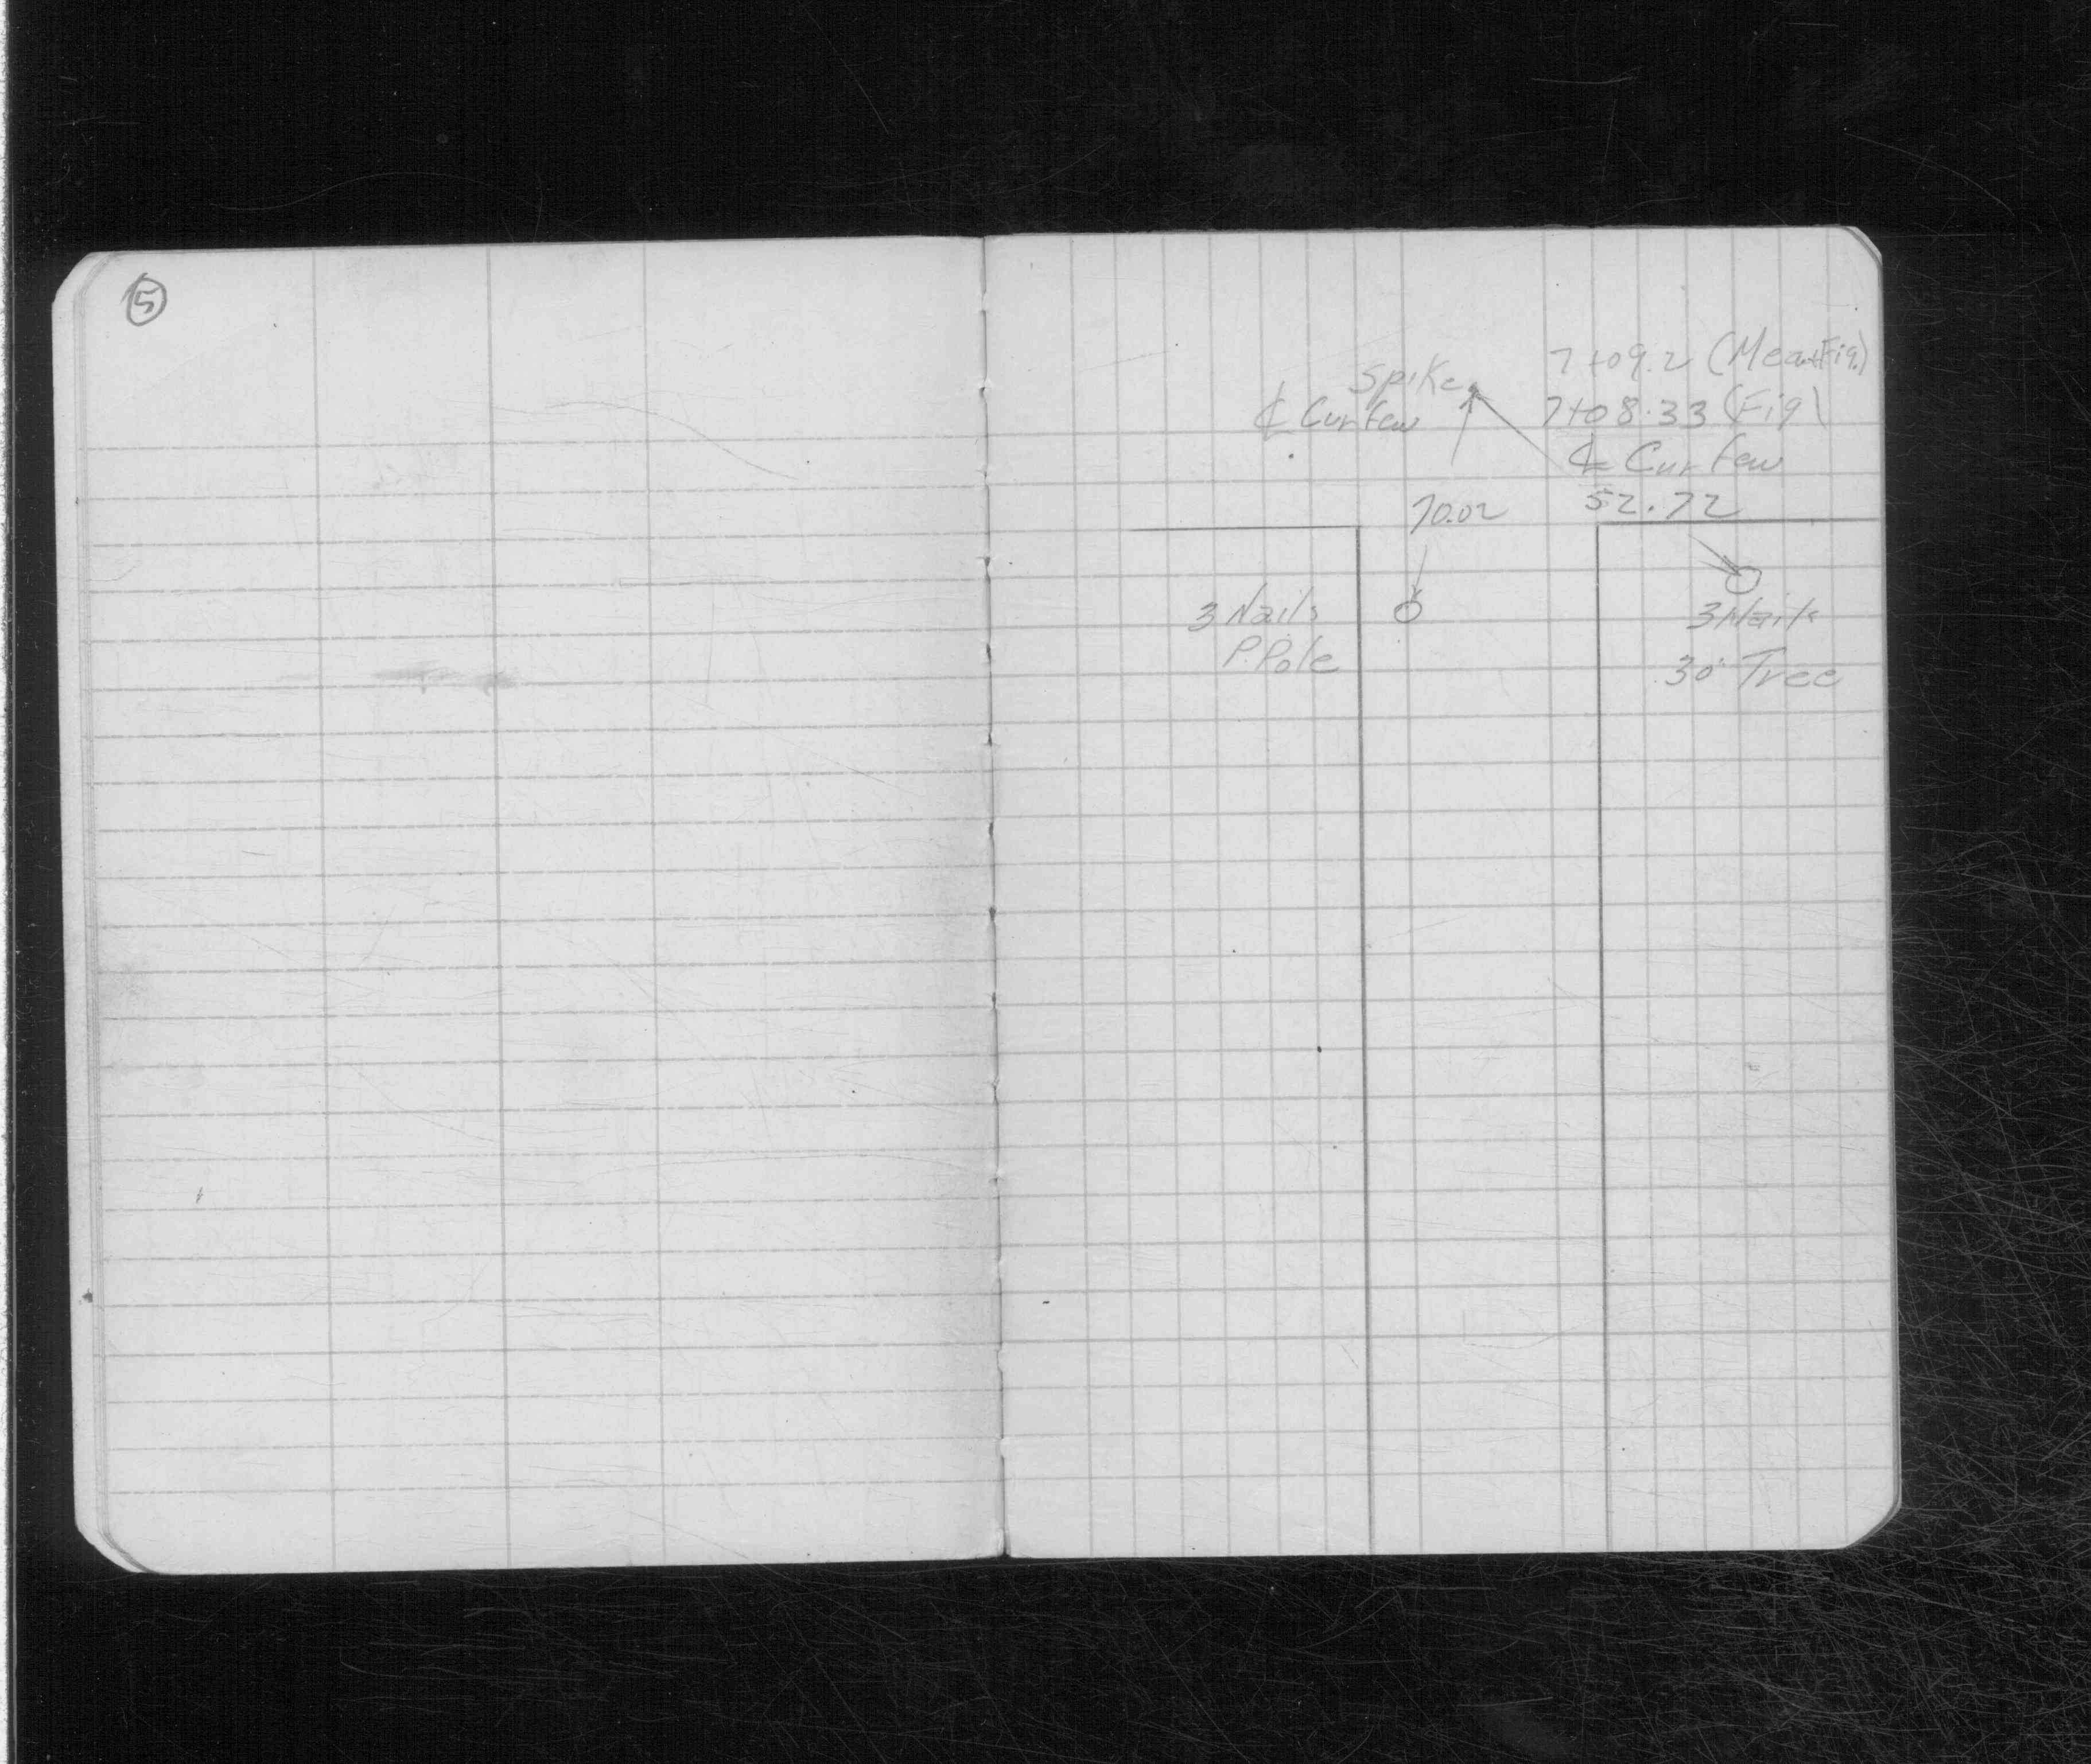 5
7+09.2 (Meas+Fig.)
Spike
7+08.33 (Fig)
℄ Curfew
℄ Curfew
70.02
52.72
3 Nails
P.Pole
3 Nails
30" Tree